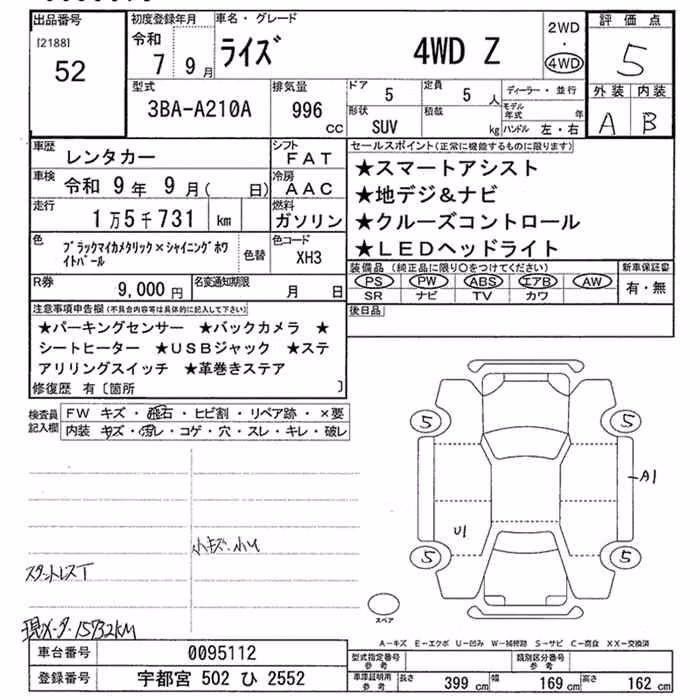 出品番号
[2188]
52
初度登録年月
令和
7 9月
車名・グレード
ライズ 4WD Z
2WD
・
4WD
評価点
5
外装 内装
A B
型式
3BA-A210A
排気量
996
CC
ドア
5
定員
5 人
ディーラー・並行
形状
SUV
積載
kg
モデル年式 年
ハンドル 左・右
車歴
レンタカー
シフト
FAT
車検
令和 9年 9月( 日)
冷房
AAC
走行
1万5千731 km
燃料
ガソリン
セールスポイント(正常に機能するものに限ります)
★スマートアシスト
★地デジ&ナビ
★クルーズコントロール
★LEDヘッドライト
色
ブラックマイカメタリック×シャイニングホワ
イトパール
色替
色コード
XH3
R券
9,000 円
名変通知期限
月 日
装備品 (純正品に限り○をつけてください)
PS PW ABS エアB AW
SR ナビ TV カワ
新車保証書
有・無
後日品
注意事項申告欄(不具合内容等は具体的に記入して下さい)
★パーキングセンサー ★バックカメラ ★
シートヒーター ★USBジャック ★ステ
アリリングスイッチ ★革巻きステア
修復歴 有〔箇所 〕
検査員
記入欄
FW キズ・飛石・ヒビ割・リペア跡・×要
内装 キズ・汚レ・コゲ・穴・スレ・キレ・破レ
小キズ、小U
スタットレスT
現メーター15732KM
5
5
A1
U1
5
5
スペア
A-キズ E-エクボ U-凹み W-補修跡 S-サビ C-腐食 XX-交換済
車台番号
0095112
型式指定番号
参考
類別区分番号
参考
登録番号
宇都宮 502 ひ 2552
車庫証明用
参考
長さ 399 cm
幅 169 cm
高さ 162 cm